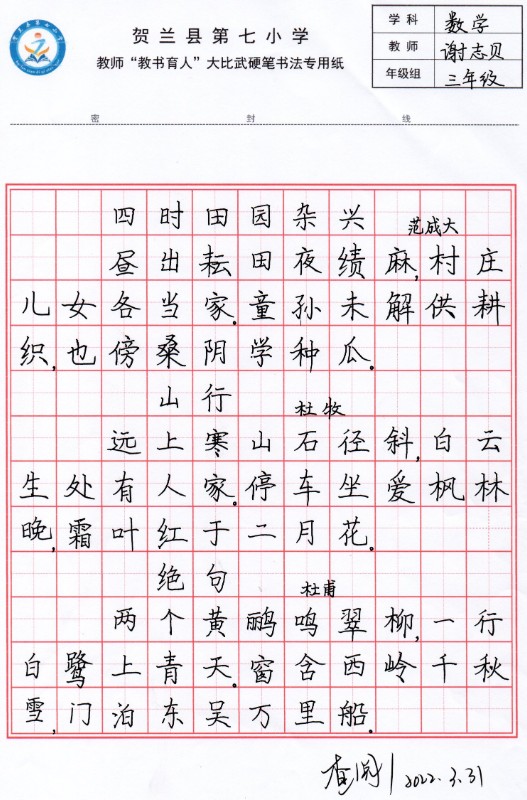 贺兰县第七小学
教师“教书育人”大比武硬笔书法专用纸
学科 数学
教师 谢志贝
年级组 三年级
密 封 线
四时田园杂兴
范成大
昼出耘田夜绩麻,村庄
儿女各当家。童孙未解供耕
织,也傍桑阴学种瓜。
山行
杜牧
远上寒山石径斜,白云
生处有人家。停车坐爱枫林
晚,霜叶红于二月花。
绝句
杜甫
两个黄鹂鸣翠柳,一行
白鹭上青天。窗含西岭千秋
雪,门泊东吴万里船。
2022.3.31